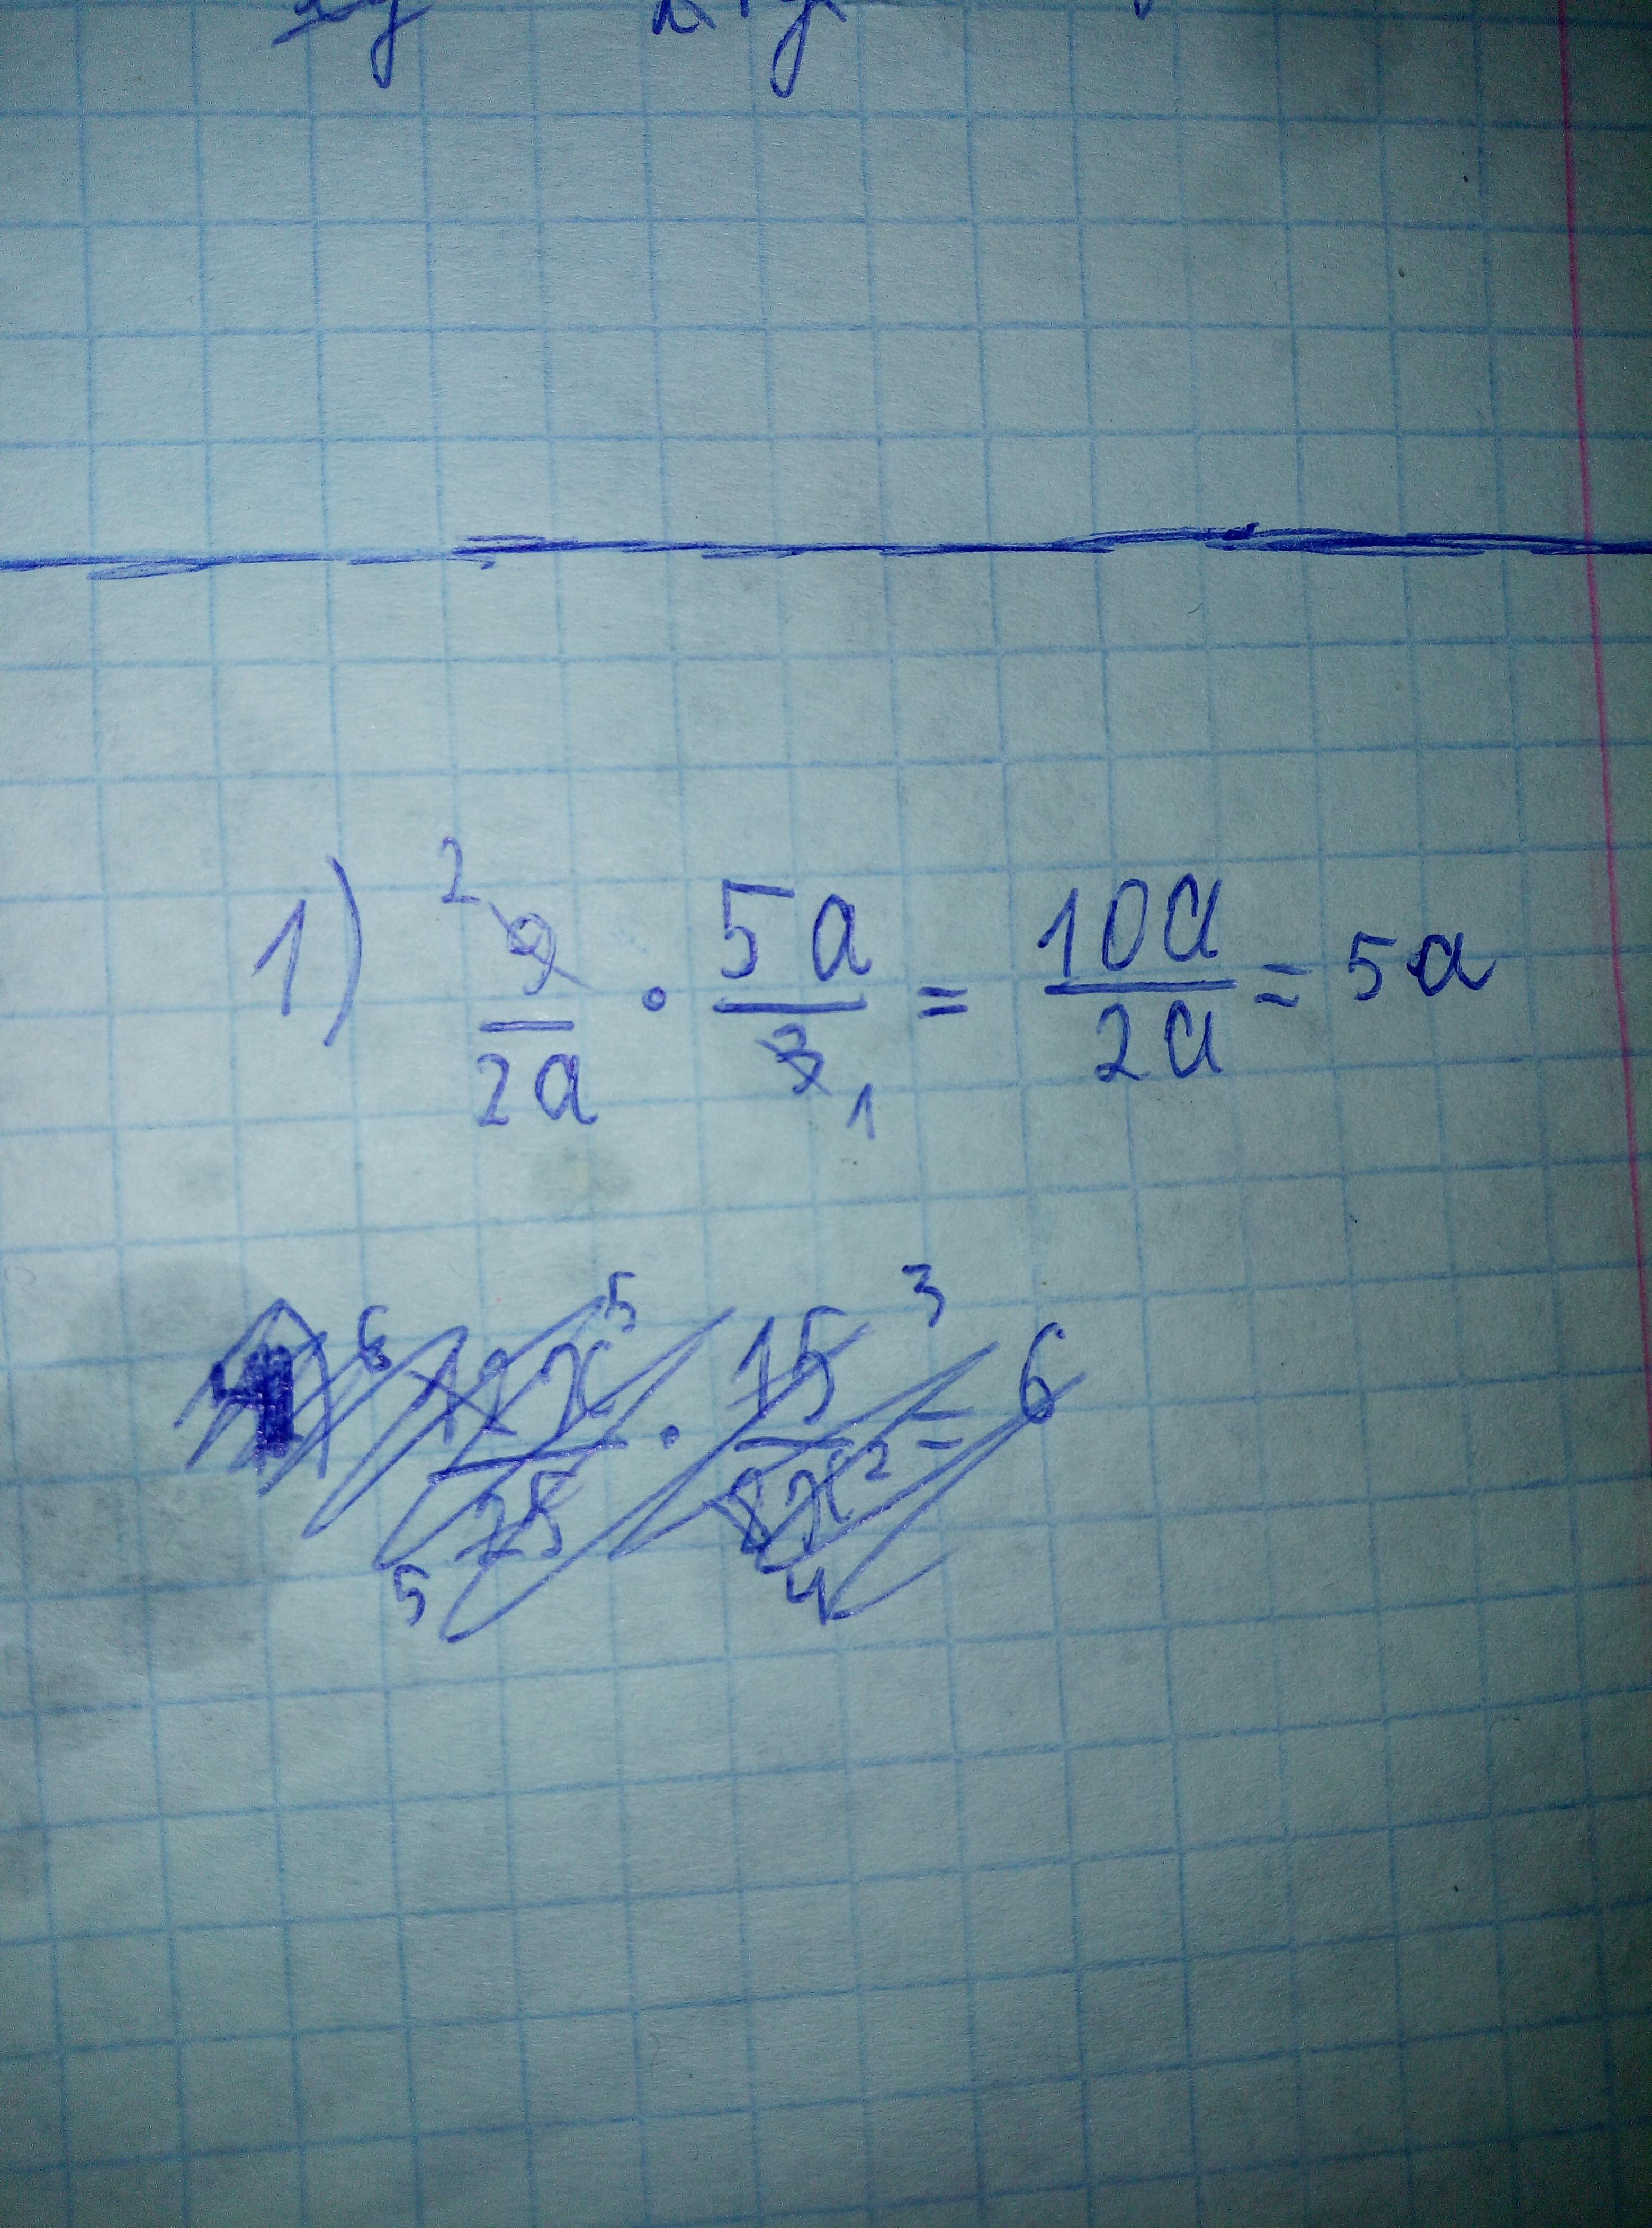 1) 2 9/2a · 5a/3 1 = 10a/2a = 5a
6 12x⁵/25 5 · 15 3/8x² 4 = 6